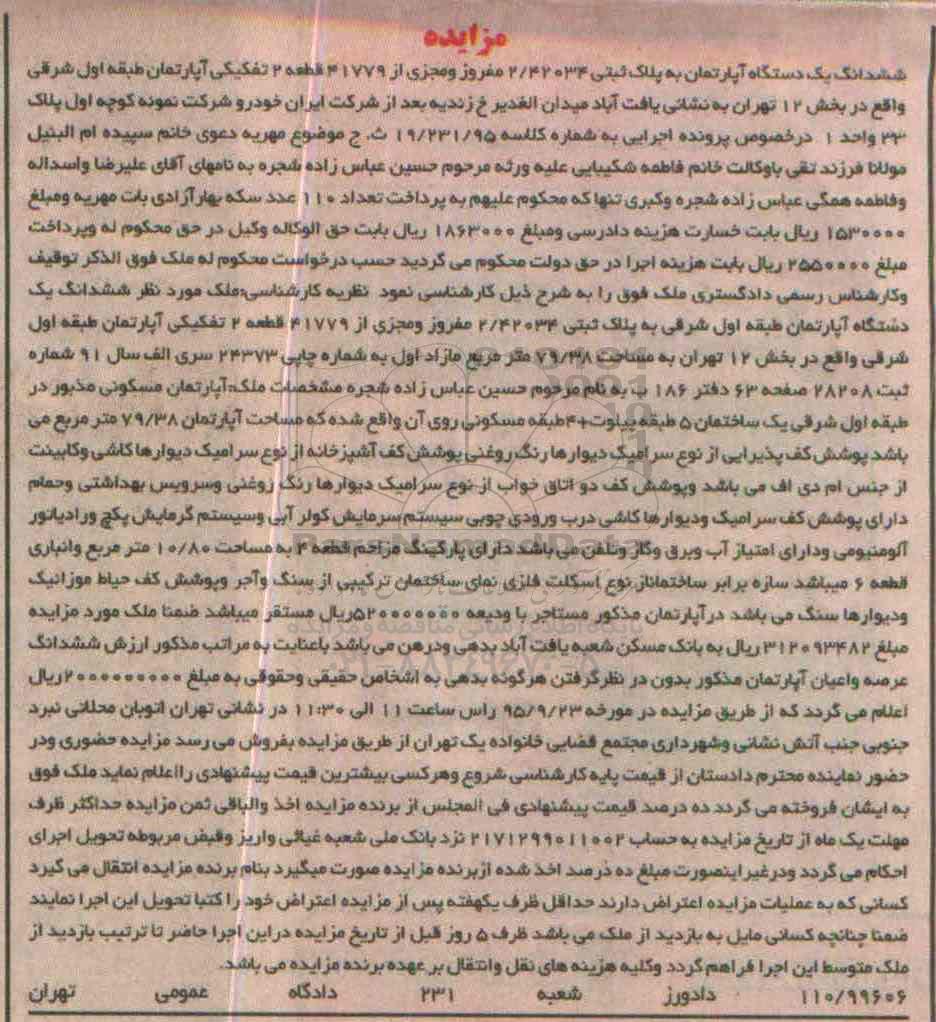 مزایده
ششدانگ یک دستگاه آپارتمان به پلاک ثبتی ۲/۴۲۰۳۴ مفروز ومجزی از ۴۱۷۷۹ قطعه ۲ تفکیکی آپارتمان طبقه اول شرقی
واقع در بخش ۱۲ تهران به نشانی یافت آباد میدان الغدیر خ زندیه بعد از شرکت ایران خودرو شرکت نمونه کوچه اول پلاک
۲۳ واحد ۱ درخصوص پرونده اجرایی به شماره کلاسه ۱۹/۲۳۱/۹۵ ث. ج موضوع مهریه دعوی خانم سپیده ام البنیل
مولانا فرزند تقی باوکالت خانم فاطمه شکیبایی علیه ورثه مرحوم حسین عباس زاده شجره به نامهای آقای علیرضا واسداله
وفاطمه همگی عباس زاده شجره وکبری تنها که محکوم علیهم به پرداخت تعداد ۱۱۰ عدد سکه بهارآزادی بات مهریه ومبلغ
۱۵۳۰۰۰۰ ریال بابت خسارت هزینه دادرسی ومبلغ ۱۸۶۳۰۰۰ ریال بابت حق الوکاله وکیل در حق محکوم له وپرداخت
مبلغ ۲۵۵۰۰۰۰ ریال بابت هزینه اجرا در حق دولت محکوم می گردید حسب درخواست محکوم له ملک فوق الذکر توقیف
وکارشناس رسمی دادگستری ملک فوق را به شرح ذیل کارشناسی نمود نظریه کارشناسی:ملک مورد نظر ششدانگ یک
دستگاه آپارتمان طبقه اول شرقی به پلاک ثبتی ۲/۴۲۰۳۴ مفروز ومجزی از ۴۱۷۷۹ قطعه ۲ تفکیکی آپارتمان طبقه اول
شرقی واقع در بخش ۱۲ تهران به مساحت ۷۹/۳۸ متر مربع مازاد اول به شماره چاپی ۲۴۳۷۳ سری الف سال ۹۱ شماره
ثبت ۲۸۲۰۸ صفحه ۶۳ دفتر ۱۸۶ ب به نام مرحوم حسین عباس زاده شجره مشخصات ملک:آپارتمان مسکونی مذبور در
طبقه اول شرقی یک ساختمان ۵ طبقه پیلوت+۴طبقه مسکونی روی آن واقع شده که مساحت آپارتمان ۷۹/۳۸ متر مربع می
باشد پوشش کف پذیرایی از نوع سرامیک دیوارها رنگ روغنی پوشش کف آشپزخانه از نوع سرامیک دیوارها کاشی وکابینت
از جنس ام دی اف می باشد وپوشش کف دو اتاق خواب از نوع سرامیک دیوارها رنگ روغنی وسرویس بهداشتی وحمام
دارای پوشش کف سرامیک ودیوارها کاشی درب ورودی چوبی سیستم سرمایش کولر آبی وسیستم گرمایش پکچ ورادیاتور
آلومنیومی ودارای امتیاز آب وبرق وگاز وتلفن می باشد دارای پارکینگ مزاحم قطعه ۴ به مساحت ۱۰/۸۰ متر مربع وانباری
قطعه ۶ میباشد سازه برابر ساختمانااز نوع اسکلت فلزی نمای ساختمان ترکیبی از سنگ وآجر وپوشش کف حیاط موزائیک
ودیوارها سنگ می باشد درآپارتمان مذکور مستاجر با ودیعه ۵۲۰۰۰۰۰۰۰ریال مستقر میباشد ضمنا ملک مورد مزایده
مبلغ ۳۱۲۰۹۳۴۸۲ ریال به بانک مسکن شعبه یافت آباد بدهی ودرهن می باشد باعنایت به مراتب مذکور ارزش ششدانگ
عرصه واعیان آپارتمان مذکور بدون در نظرگرفتن هرگونه بدهی به اشخاص حقیقی وحقوقی به مبلغ ۲۰۰۰۰۰۰۰۰۰ریال
اعلام می گردد که از طریق مزایده در مورخه ۹۵/۹/۲۳ راس ساعت ۱۱ الی ۱۱:۳۰ در نشانی تهران اتوبان محلاتی نبرد
جنوبی جنب آتش نشانی وشهرداری مجتمع قضایی خانواده یک تهران از طریق مزایده بفروش می رسد مزایده حضوری ودر
حضور نماینده محترم دادستان از قیمت پایه کارشناسی شروع وهرکسی بیشترین قیمت پیشنهادی را اعلام نماید ملک فوق
به ایشان فروخته می گردد ده درصد قیمت پیشنهادی فی المجلس از برنده مزایده اخذ والباقی ثمن مزایده حداکثر ظرف
مهلت یک ماه از تاریخ مزایده به حساب ۲۱۷۱۲۹۹۰۱۱۰۰۲ نزد بانک ملی شعبه غیاثی واریز وقبض مربوطه تحویل اجرای
احکام می گردد ودرغیراینصورت مبلغ ده درصد اخذ شده ازبرنده مزایده صورت میگیرد بنام برنده مزایده انتقال می گیرد
کسانی که به عملیات مزایده اعتراض دارند حداقل ظرف یکهفته پس از مزایده اعتراض خود را کتبا تحویل این اجرا نمایند
ضمنا چنانچه کسانی مایل به بازدید از ملک می باشد ظرف ۵ روز قبل از تاریخ مزایده دراین اجرا حاضر تا ترتیب بازدید از
ملک متوسط این اجرا فراهم گردد وکلیه هزینه های نقل وانتقال بر عهده برنده مزایده می باشد.
۱۱۰/۹۹۶۰۶ دادورز شعبه ۲۳۱ دادگاه عمومی تهران